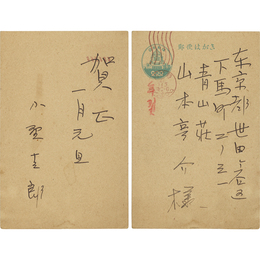 賀正
一月元旦
郎
郵便はがき
東京都世田谷区
下馬町二ノ三一
青山荘
山本
介様